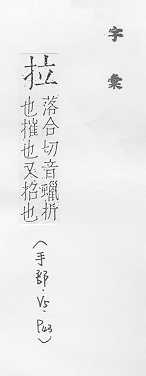 字彙
拉
落合切音蠟折
也摧也又招也
(手部·V5·P43)